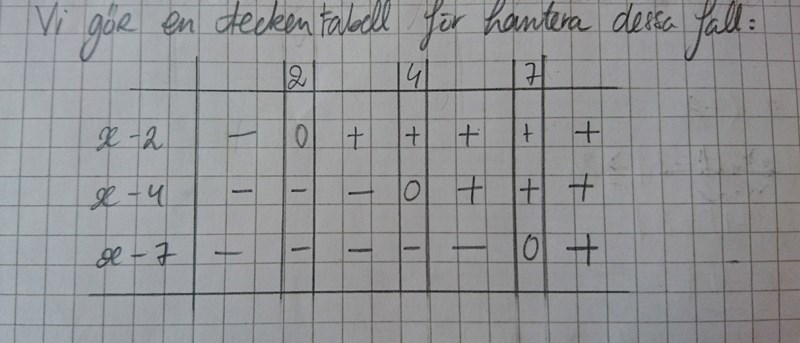 Vi gör en teckentabell för hantera dessa fall:
2 4 7
x-2 - 0 + + + + +
x-4 - - - 0 + + +
x-7 - - - - - 0 +